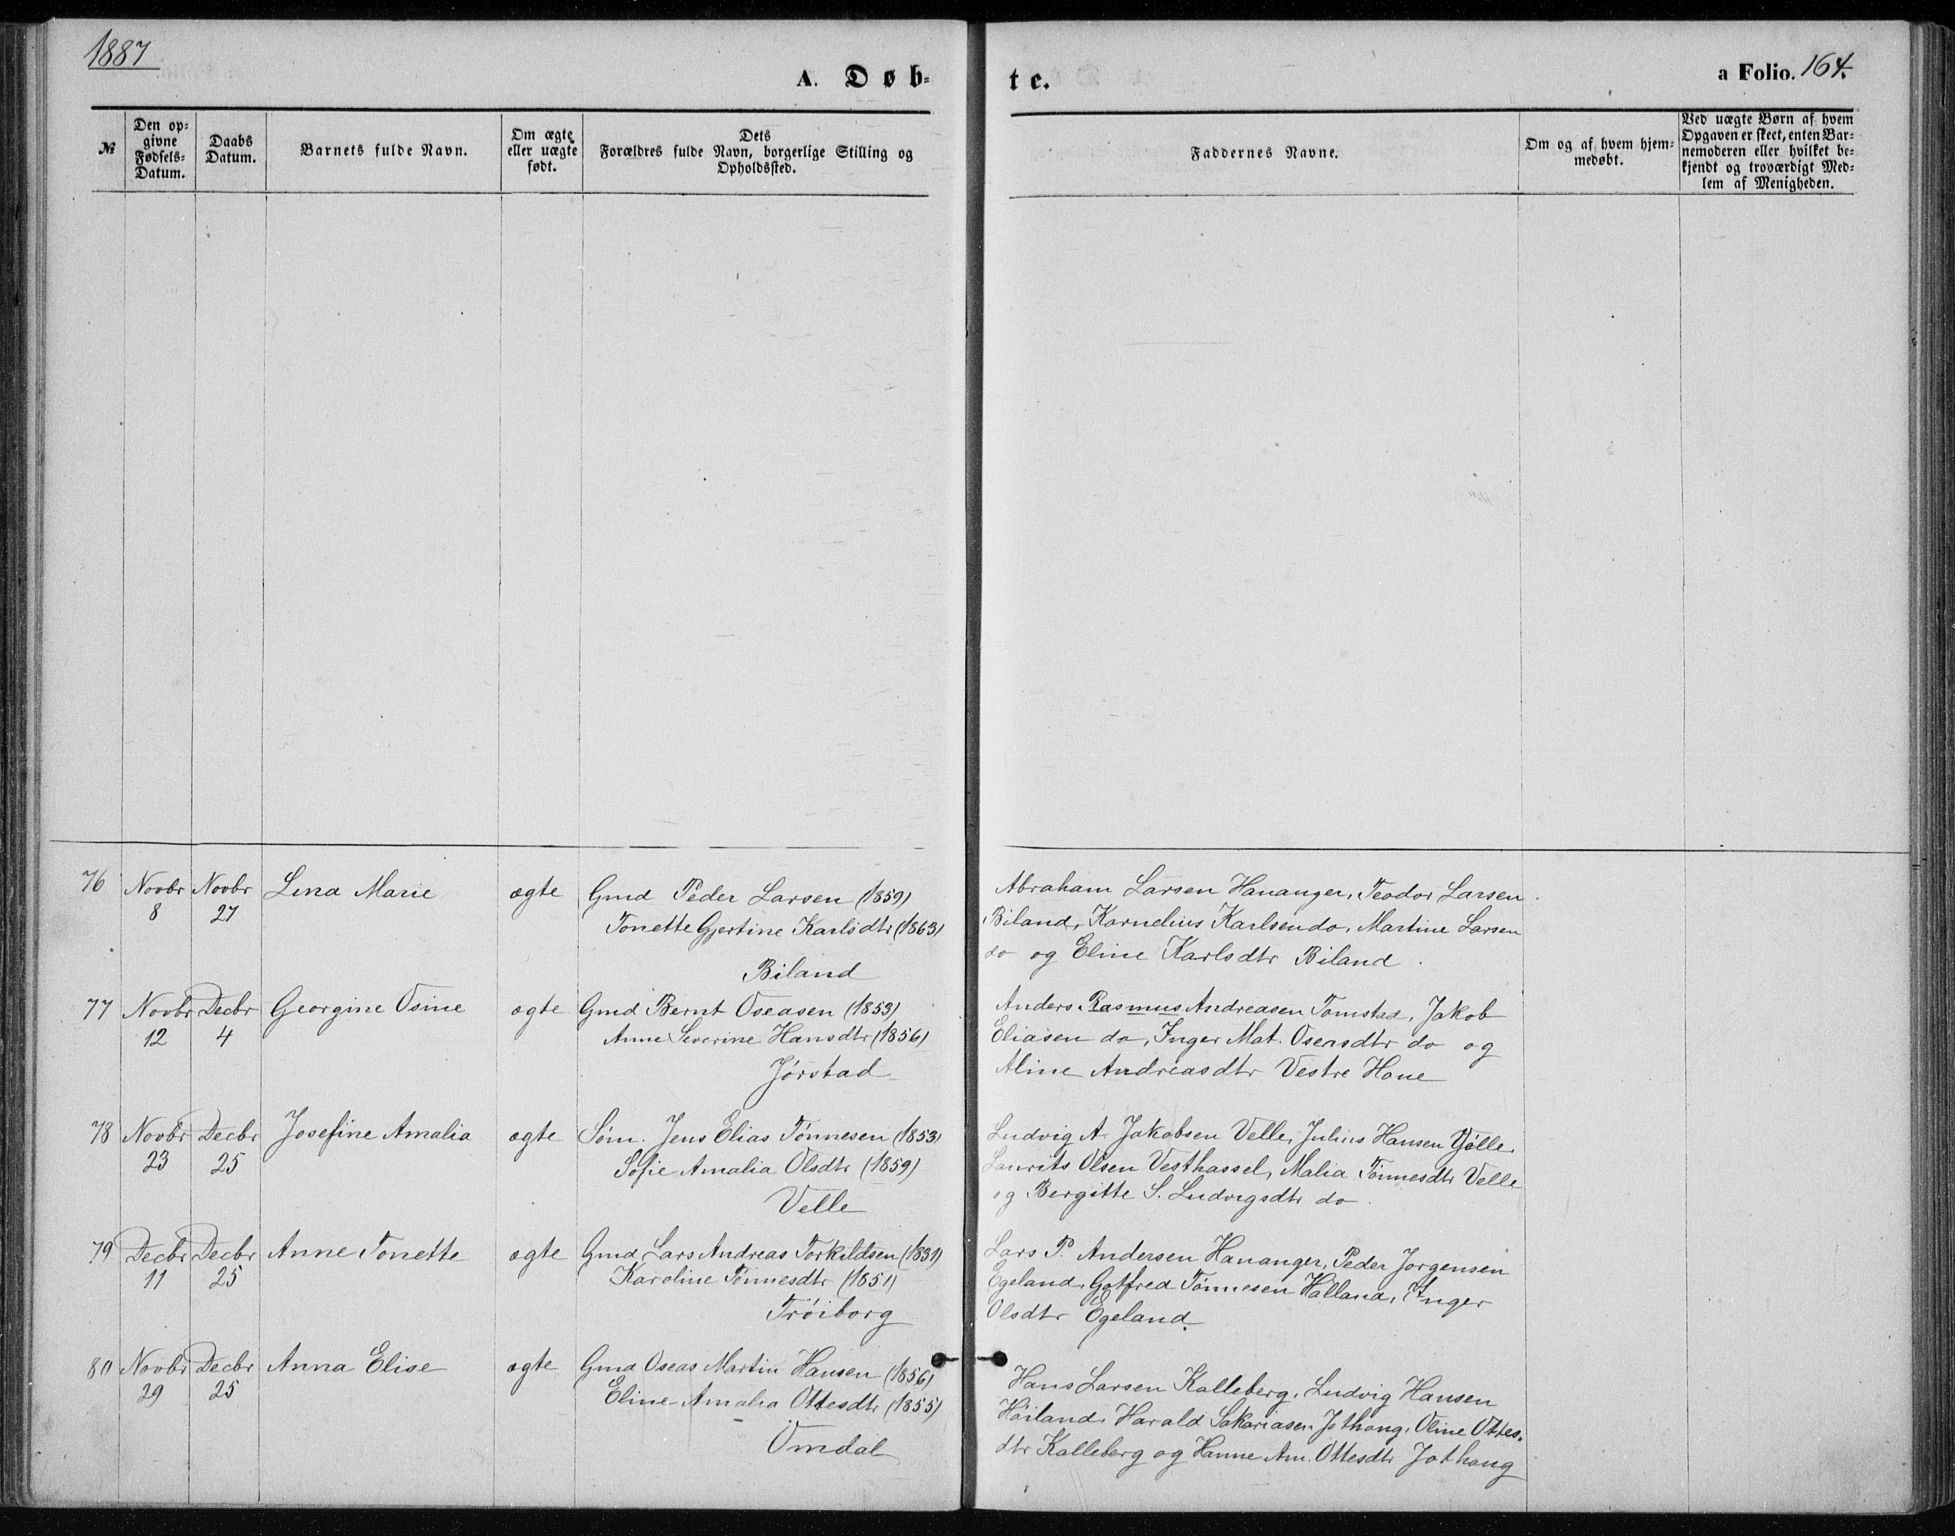 1887
A. Døb-
te.
a Folio. 164.
№
Den op-
givne
Fødsels-
Datum.
Daabs
Datum.
Barnets fulde Navn.
Om ægte
eller uægte
født.
Dets
Forældres fulde Navn, borgerlige Stilling og
Opholdssted.
Faddernes Navne.
Om og af hvem hjem-
medøbt.
Ved uægte Børn af hvem
Opgaven er skeet, enten Bar-
nemoderen eller hvilket be-
kjendt og troværdigt Med-
lem af Menigheden.
76 Novbr Novbr Lena Marie ægte Gmd Peder Larsen (1859)
8 27 Tonette Gjertine Karlsdtr (1863)
Biland
Abraham Larsen Hananger, Teodor Larsen
Biland, Kornelius Karlsen do, Martine Larsen
do og Eline Karlsdtr Biland.
77 Novbr Decbr Georgine Osine ægte Gmd Bernt Oseasen (1853)
12 4 Anne Severine Hansdtr (1856)
Jørstad
Anders Rasmus Andreasen Tomstad, Jakob
Eliasen do, Inger Mat. Osensdtr do og
Aline Andreasdtr Vestre Hone
78 Novbr Decbr Josefine Amalia ægte Søm. Jens Elias Tønnesen (1853)
23 25 Sofie Amalia Olsdtr (1859)
Velle
Ludvig A. Jakobsen Velle, Julius Hansen Gjølle,
Laurits Olsen Vesthassel, Malia Tønnesdtr Velle
og Bergitte S. Ludvigsdtr do.
79 Decbr Decbr Anne Tonette ægte Gmd Lars Andreas Torkildsen (1831)
11 25 Karoline Tønnesdtr (1851)
Trøiborg
Lars P. Andersen Hananger, Peder Jørgensen
Egeland, Gotfred Tønnesen Hølland, Inger
Olsdtr Egeland.
80 Novbr Decbr Anna Elise ægte Gmd Oseas Martin Hansen (1856)
29 25 Eline Amalia Ottesdtr (1855)
Omdal
Hans Larsen Kalleberg, Ludvig Hansen
Høiland, Harald Sakariasen Jothong, Oline Ottes-
dtr Kalleberg og Hanne Am. Ottesdtr Jothong